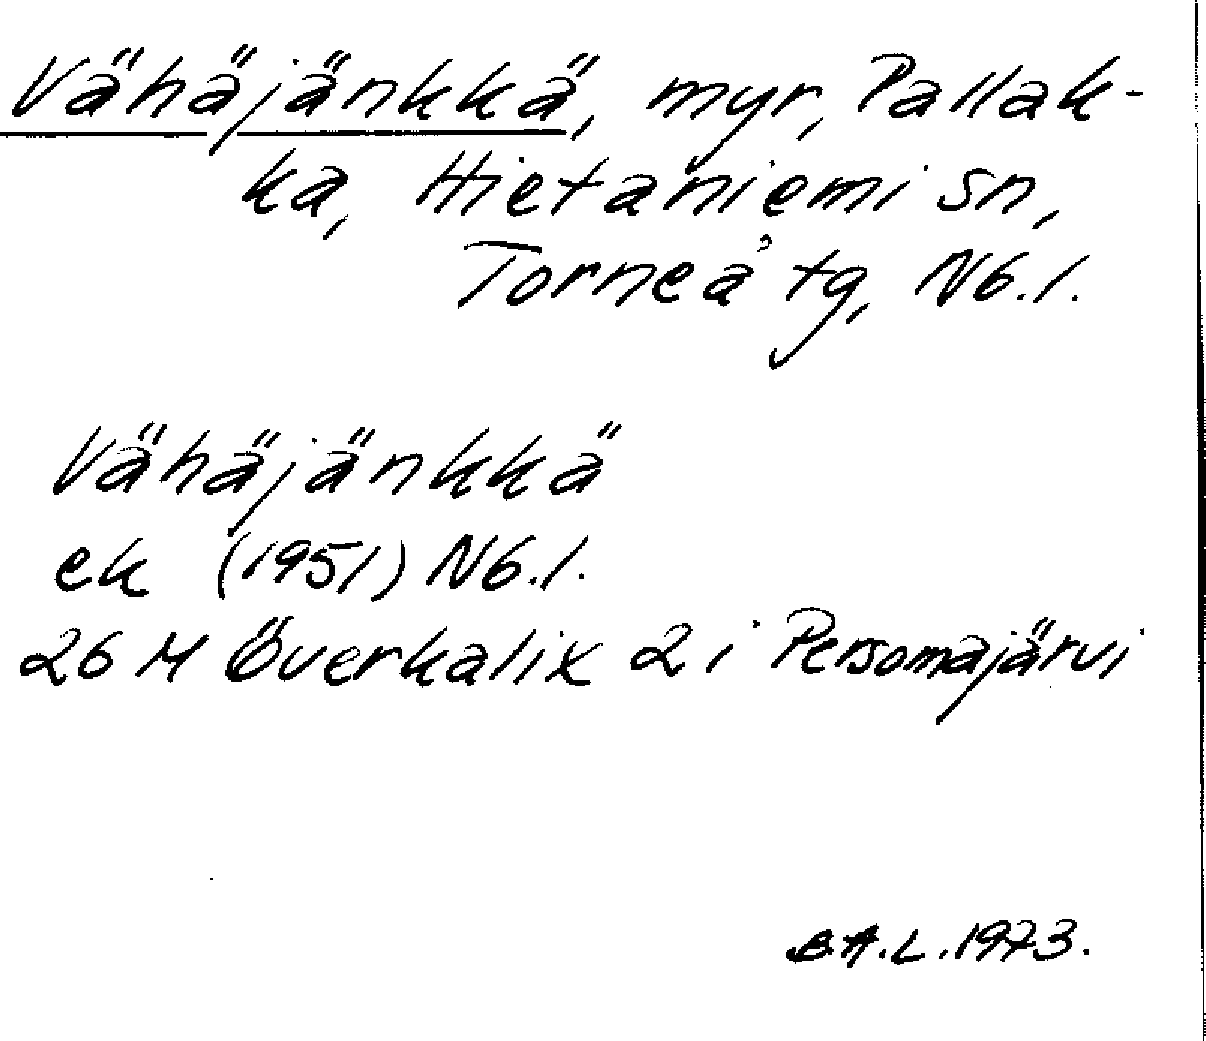 Vähäjänkkä, myr, Pallak-
ka, Hietaniemi sn,
Torneå tg, Nb.l.
Vähäjänkkä
ek (1951) Nb.l.
26 M Överkalix 2 i Persomajärvi
B.A.L. 1973.